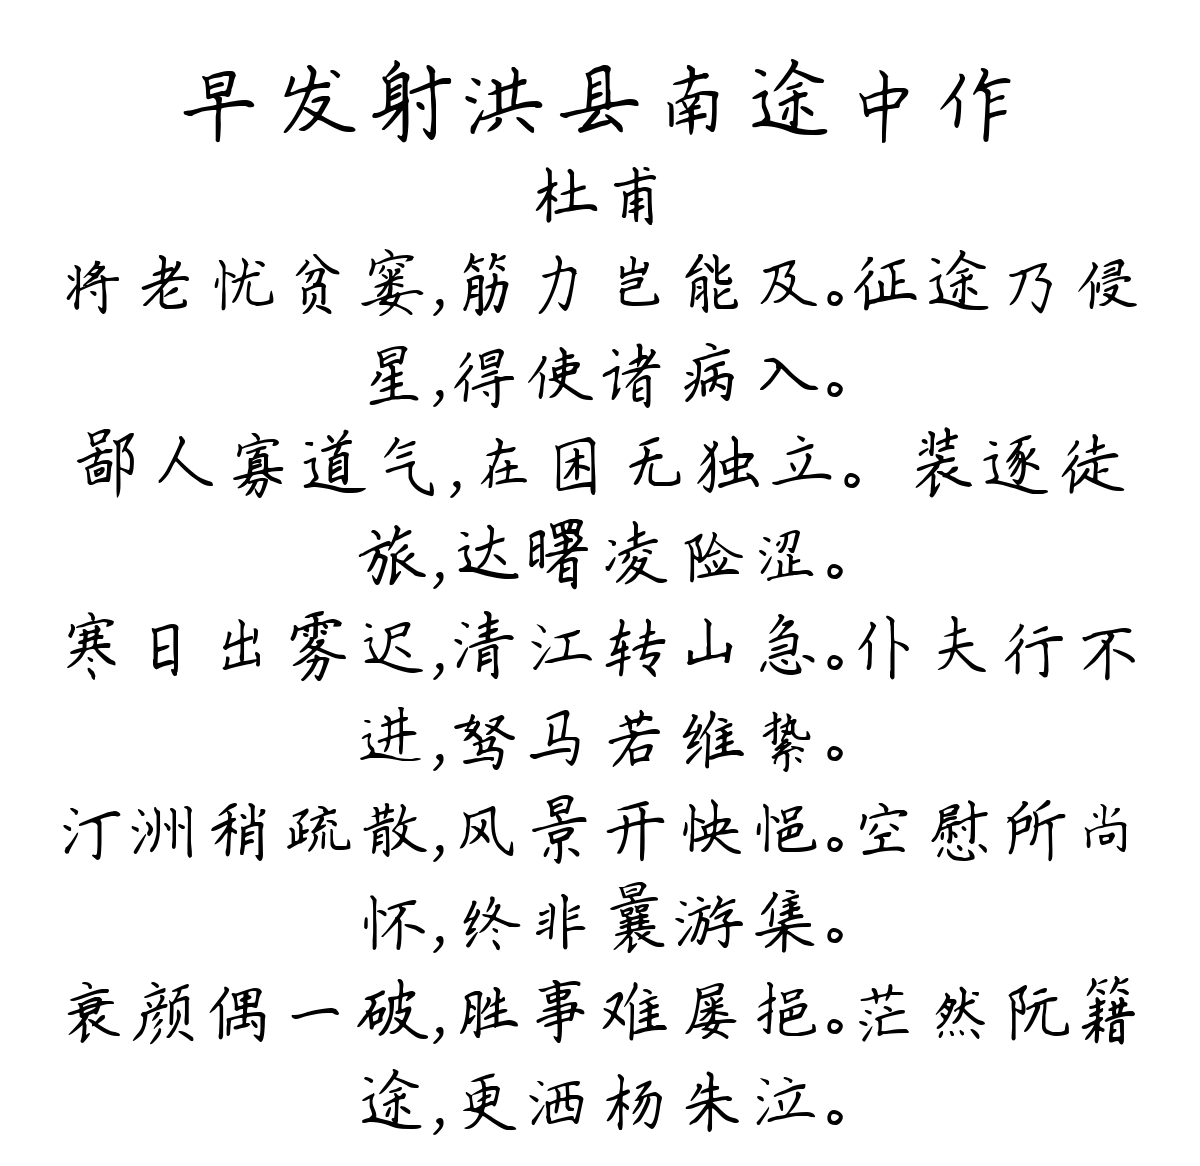 早发射洪县南途中作
杜甫
将老忧贫窭,筋力岂能及。征途乃侵
星,得使诸病入。
鄙人寡道气,在困无独立。装逐徒
旅,达曙凌险涩。
寒日出雾迟,清江转山急。仆夫行不
进,驽马若维絷。
汀洲稍疏散,风景开怏悒。空慰所尚
怀,终非曩游集。
衰颜偶一破,胜事难屡挹。茫然阮籍
途,更洒杨朱泣。